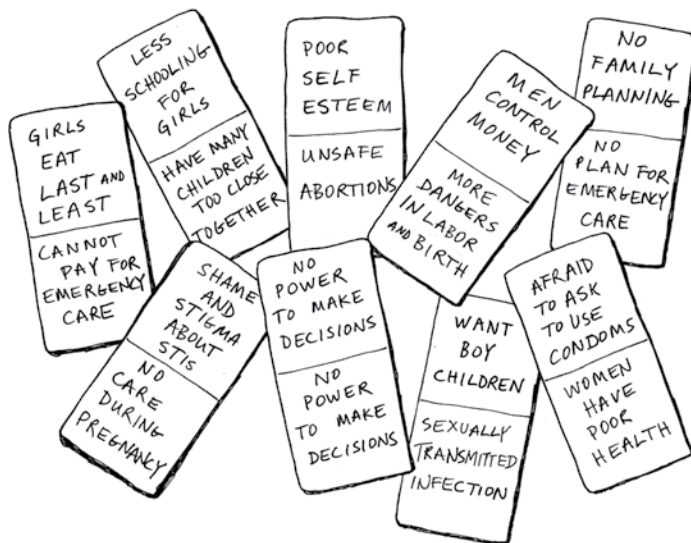 GIRLS
EAT
LAST AND
LEAST
CANNOT
PAY FOR
EMERGENCY
CARE
LESS
SCHOOLING
FOR
GIRLS
HAVE MANY
CHILDREN
TOO CLOSE
TOGETHER
POOR
SELF
ESTEEM
UNSAFE
ABORTIONS
MEN
CONTROL
MONEY
MORE
DANGERS
IN LABOR
AND BIRTH
NO
FAMILY
PLANNING
NO
PLAN FOR
EMERGENCY
CARE
SHAME
AND
STIGMA
ABOUT
STIS
NO
CARE
DURING
PREGNANCY
NO
POWER
TO MAKE
DECISIONS
NO
POWER
TO MAKE
DECISIONS
WANT
BOY
CHILDREN
SEXUALLY
TRANSMITTED
INFECTION
AFRAID
TO ASK
TO USE
CONDOMS
WOMEN
HAVE
POOR
HEALTH